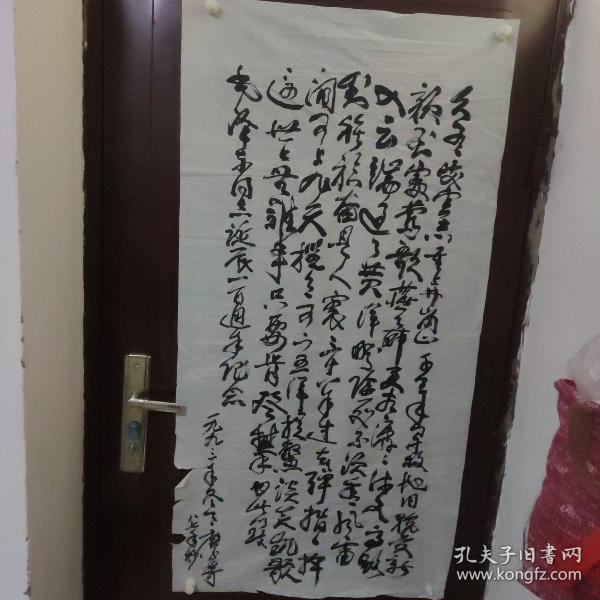 久有凌云志重上井冈山千里来寻故地旧貌变新
颜到处莺歌燕舞更有潺潺流水高路
入云端过了黄洋界险处不须看风雷
动旌旗奋是人寰三十八年过去弹指一挥
间可上九天揽月可下五洋捉鳖谈笑凯歌
还世上无难事只要肯登攀
毛泽东同志诞辰一百周年纪念
一九九三年冬
孔夫子旧书网
www.kongfz.com